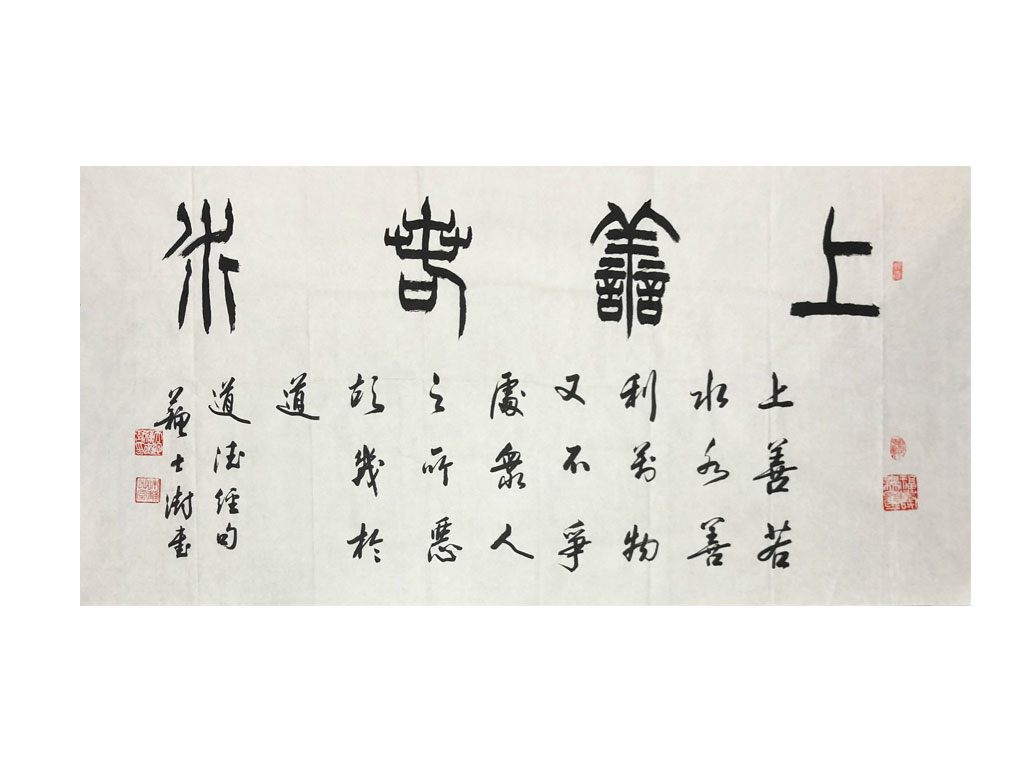 上善若水
上善若
水水善
利萬物
又不爭
處衆人
之所惡
故幾於
道
道德經句
蘇士澍書